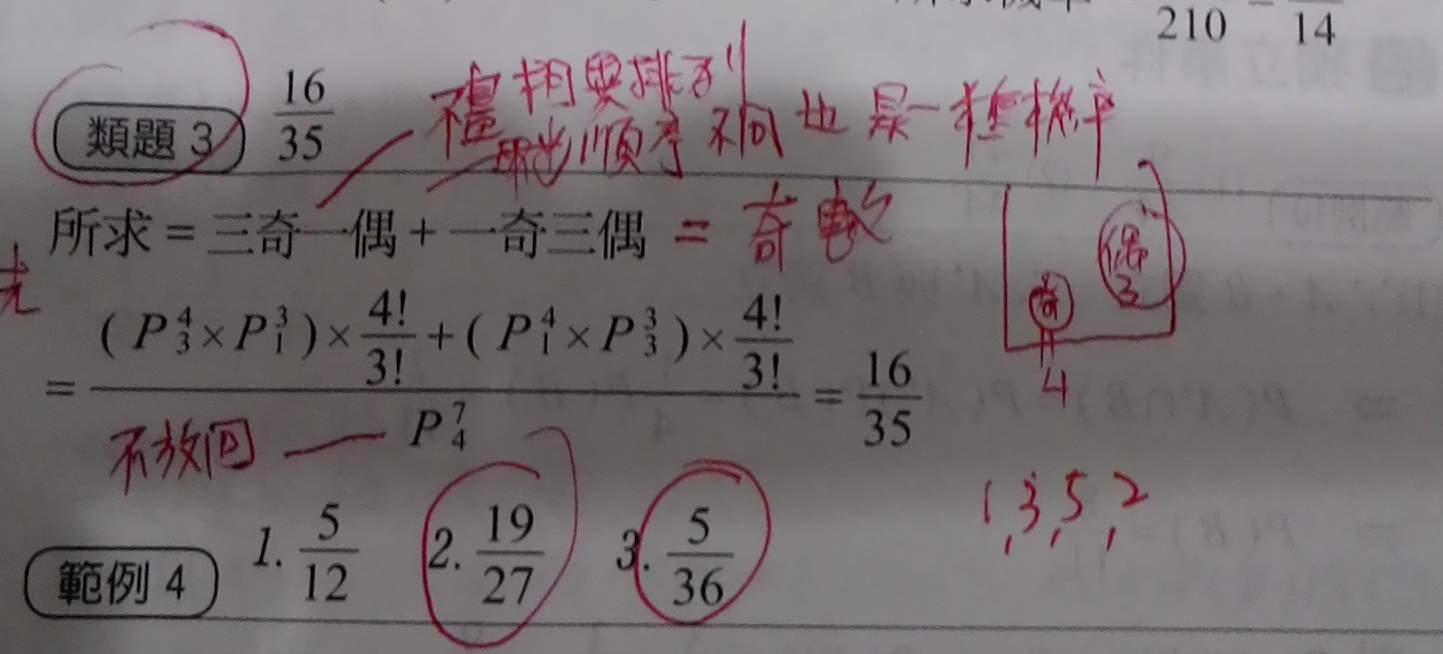 210 14
類題 3 16/35 相要排列
順序不同也是一種機率
所求 = 三奇一偶 + 一奇三偶 = 奇數
偶 3
奇
4
= ((P⁴₃×P³₁)×4!/3!+(P⁴₁×P³₃)×4!/3!)/P⁷₄ = 16/35
不放回
1,3,5,2
範例 4 1. 5/12 2. 19/27 3. 5/36